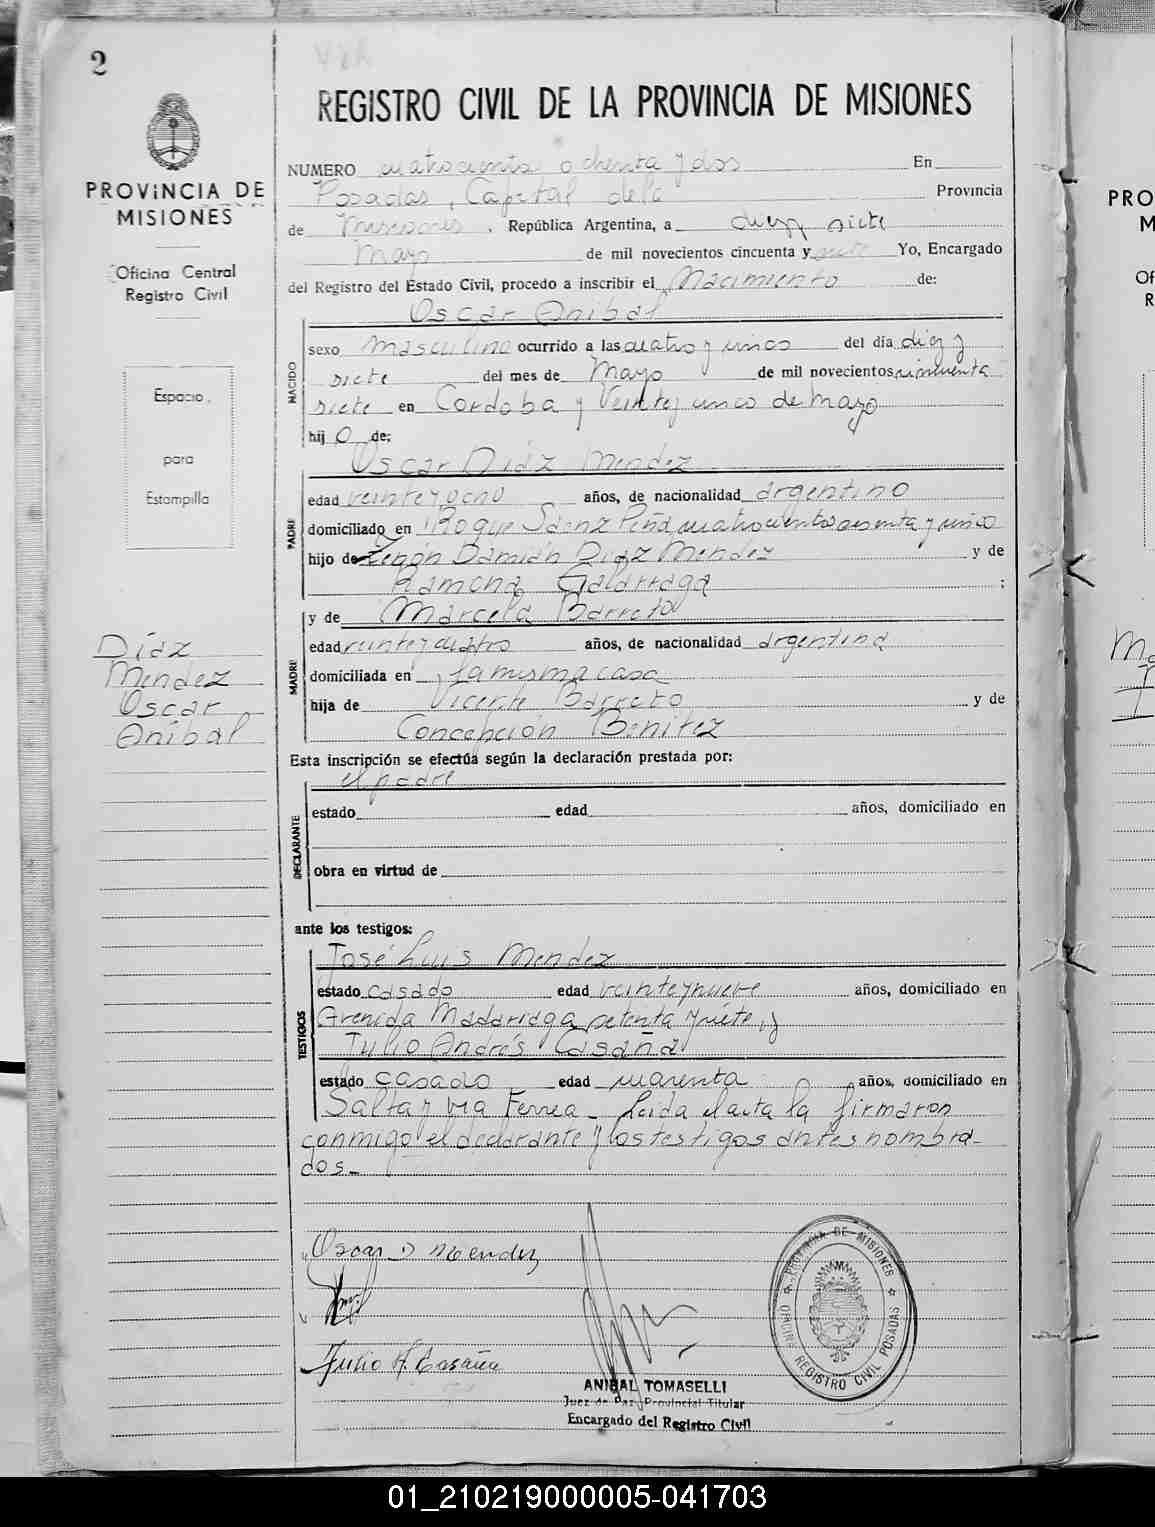 2
PROVINCIA DE
MISIONES
Oficina Central
Registro Civil
Espacio
para
Estampilla
Díaz
Mendez
Oscar
Anibal
REGISTRO CIVIL DE LA PROVINCIA DE MISIONES
NUMERO cuatrocientos ochenta y dos En
Posadas, Capital de la Provincia
de Misiones, República Argentina, a diez y siete
Mayo de mil novecientos cincuenta y siete Yo, Encargado
del Registro del Estado Civil, procedo a inscribir el Nacimiento de:
Oscar Anibal
NACIDO
sexo masculino ocurrido a las cuatro y cinco del día diez y
siete del mes de Mayo de mil novecientos cincuenta
siete en Cordoba y Veinte y cinco de mayo
hij o de:
Oscar Diáz Mendez
PADRE
edad veinte y ocho años, de nacionalidad argentino
domiciliado en Roque Sáenz Peña cuatrocientos y cinco
hijo de Zenón Damián Diaz Mendez y de
Ramona Galarraga ;
MADRE
y de Marcela Barreto
edad veinte y cuatro años, de nacionalidad argentina
domiciliada en la misma casa
hija de Vicente Barreto y de
Concepción Benitez
Esta inscripción se efectúa según la declaración prestada por:
el padre
DECLARANTE
estado edad años, domiciliado en
obra en virtud de
ante los testigos:
José Luis Mendez
TESTIGOS
estado casado edad veinte y nueve años, domiciliado en
Avenida Madariaga setenta y siete, y
Julio Andrés Casaña
estado casado edad cuarenta años, domiciliado en
Salta y Via Ferrea - Leida el acta la firmaron
conmigo el declarante y los testigos antes nombra-
dos.-
Oscar D Mendez
Julio A. Casaña
ANIBAL TOMASELLI
Juez de Paz Provincial Titular
Encargado del Registro Civil
PROVINCIA DE MISIONES
OFICINA REGISTRO CIVIL POSADAS
PRO
M
Of
R
01_210219000005-041703